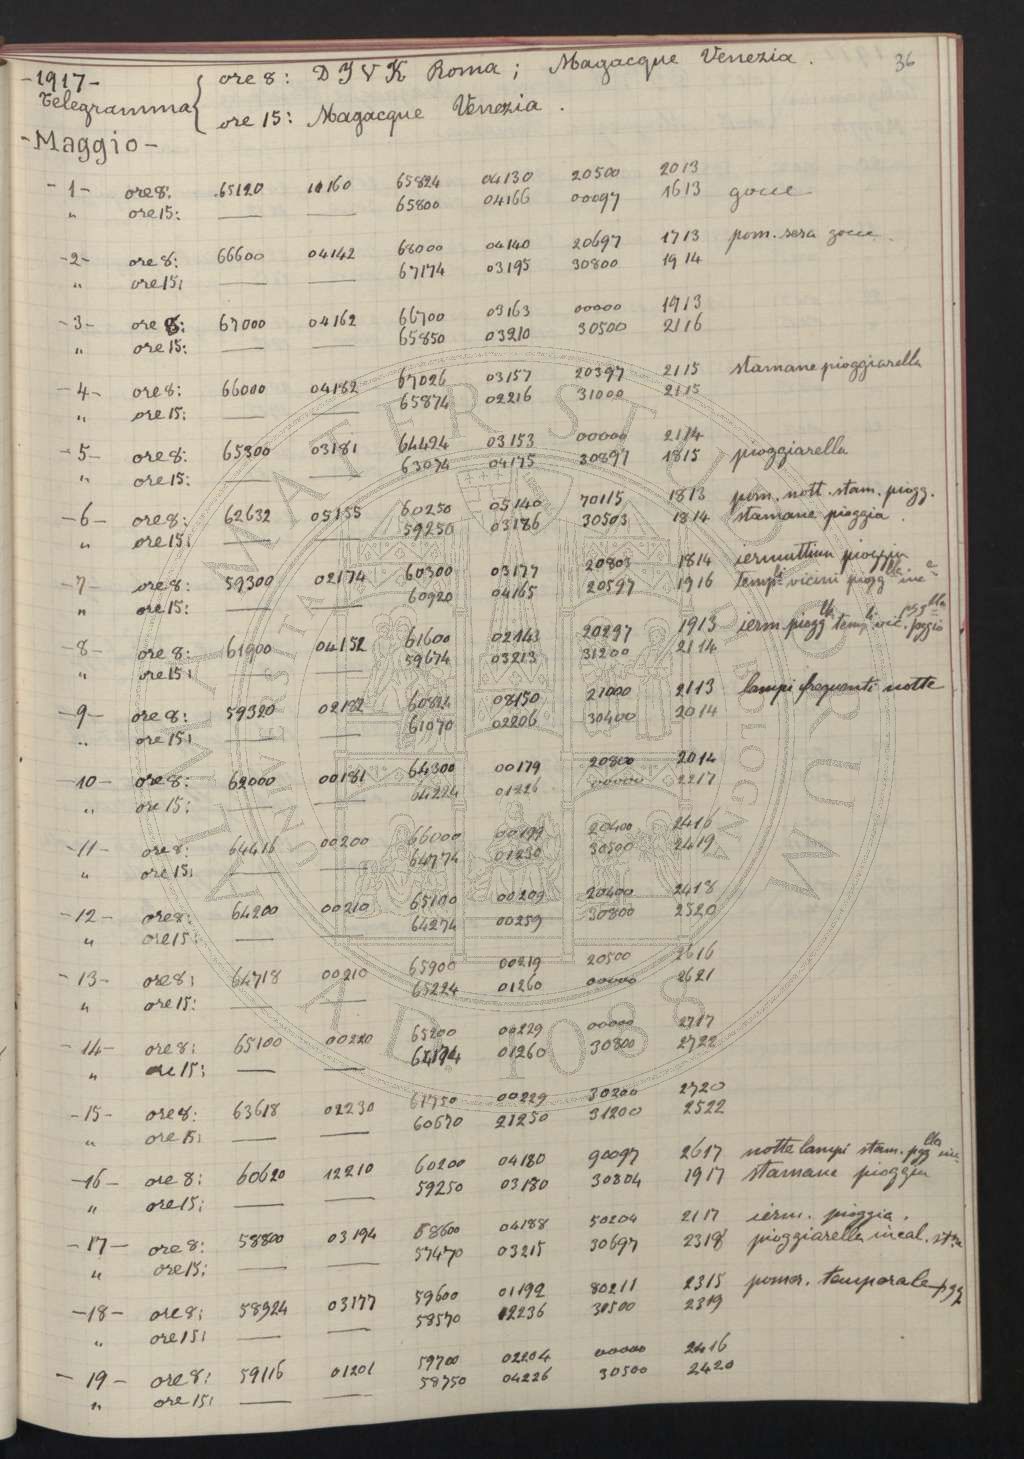 36
-1917- ore 8: D I V K Roma; Magacque Venezia.
Telegramma ore 15: Magacque Venezia.
-Maggio-
-1- ore 8: 65120 11160 65824 04130 20500 2013
" ore 15: — — 65800 04166 00097 1613 gocce
-2- ore 8: 66600 04142 68000 04140 20697 1713 pom. sera gocce.
" ore 15: — — 67174 03195 30800 1914
-3- ore 8: 67000 04162 66700 03163 00000 1913
" ore 15: — — 65850 03210 30500 2116
-4- ore 8: 66000 04182 67026 03157 20397 2115 stamane pioggiarella
" ore 15: — — 65874 02216 31000 2115
-5- ore 8: 65300 03181 64424 03153 00000 2114
" ore 15: — — 63074 04175 30897 1815 pioggiarella
-6- ore 8: 62632 05155 60250 05140 70115 1813 pom. nott. stam. piogg.
" ore 15: — — 59250 03186 30503 1814 stamane pioggia.
-7- ore 8: 59300 02174 60300 03177 20803 1814 iermattina pioggia
" ore 15: — — 60920 04165 20597 1916 temp.li vicini piogg.lla
-8- ore 8: 61900 04152 61600 02143 20297 1913 ierm. piogg.lla temp.li vic.
" ore 15: — — 59674 03213 31200 2114
-9- ore 8: 59320 02132 60824 08150 21000 2113 lampi frequenti notte
" ore 15: — — 61070 02206 30400 2014
-10- ore 8: 62000 00181 64300 00179 20800 2014
" ore 15: — — 64224 01226 00000 2217
-11- ore 8: 64416 00200 66000 00199 20400 2416
" ore 15: — — 64774 01230 30500 2419
-12- ore 8: 64200 00210 65100 00209 20400 2418
" ore 15: — — 64274 00259 30800 2520
-13- ore 8: 64718 00210 65900 00219 20500 2616
" ore 15: — — 65224 01260 00000 2621
-14- ore 8: 65100 00220 65200 00229 00000 2717
" ore 15: — — 01260 30800 2722
-15- ore 8: 63618 02230 61750 00229 30200 2720
" ore 15: — — 60670 21250 31200 2522
-16- ore 8: 60620 12210 60200 04180 90097 2617 notte lampi stam. pgg.lla
" ore 15: — — 59250 03180 30804 1917 stamane pioggia
-17- ore 8: 58800 03194 58600 04188 50204 2117 ierm. pioggia.
" ore 15: — — 57470 03215 30697 2318 pioggiarella
-18- ore 8: 58924 03177 59600 01192 80211 2315 pomer. temporale pgg
" ore 15: — — 58570 02236 30500 2319
-19- ore 8: 59116 01201 59700 02204 00000 2416
" ore 15: — — 58750 04226 30500 2420
ALMA MATER STUDIORUM
UNIVERSITAS BOLOGNA
A.D. 1088